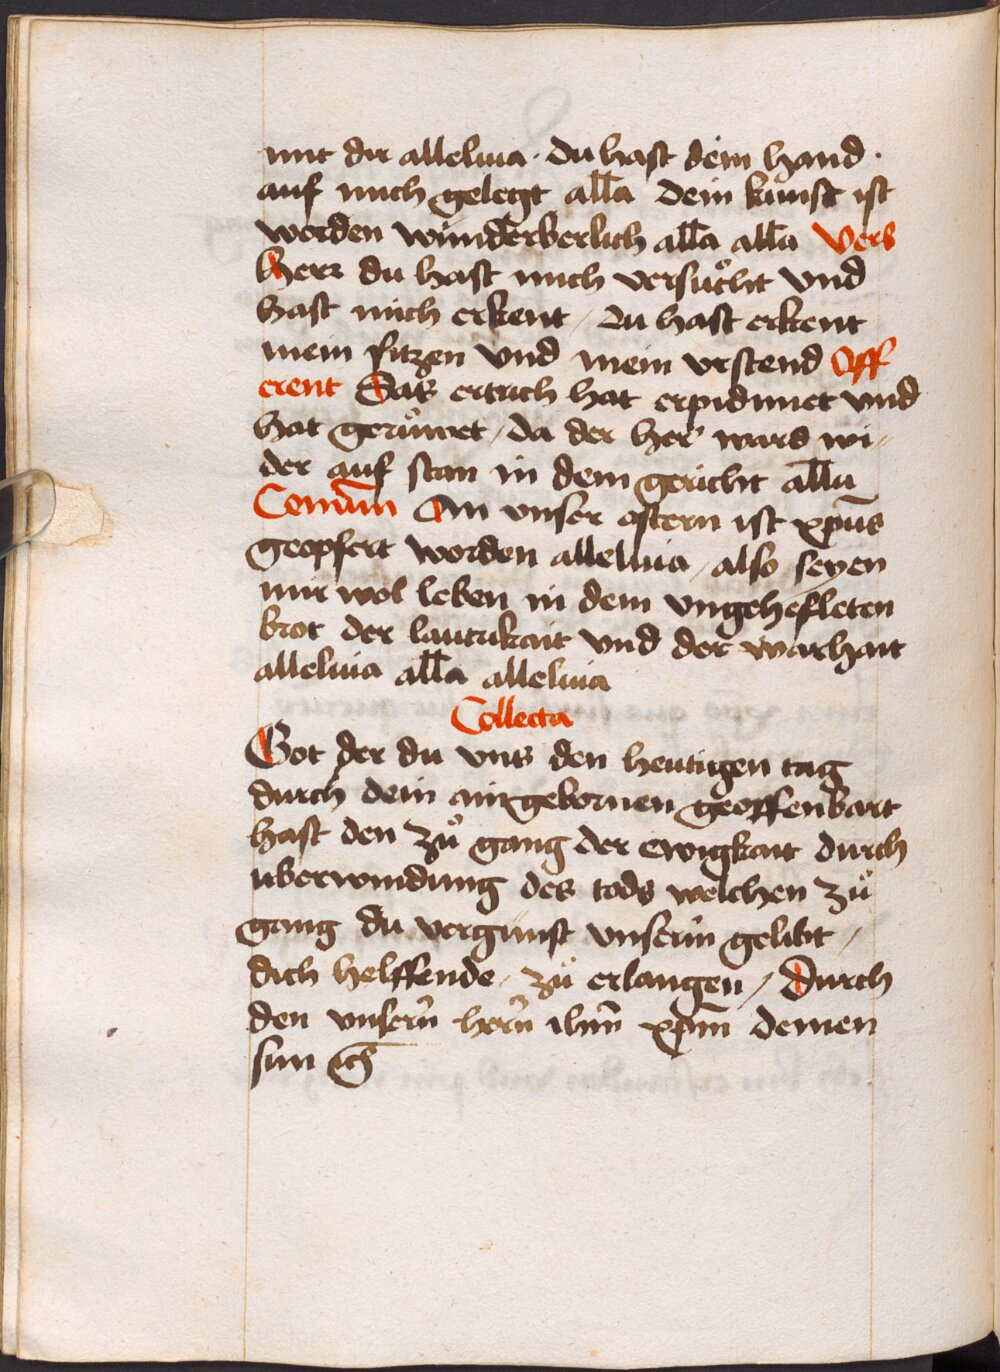 mit dir alleluia · du hast dein hand ·
auf mich gelegt all̄a dein kunst ist
worden wunderberlich all̄a all̄a Vers
Herr du hast mich versuͦcht vnd
hast mich erkent / du hast erkent
mein sitzen vnd mein vrstend Off
erent Das ertrich hat erpidmet vnd
hat geruͦwet / da der her wurd wi⸗
der auf stan in dem gericht all̄a
Comūn An vnser ostern ist xp̄us
geopfert worden alleluia / also seyen
mir wol leben in dem vngehefleten
brot der lautrikait vnd der warhait
alleluia all̄a alleluia
Collecta
Got der du vns den heutigen tag
durch dein aingebornen geoffenbart
hast den zuͦ gang der ewigkait durch
uberwindung des tods welchen zuͦ
gang du vergunst vnserm gelibt /
dich helffende / zuͦ erlangen / Durch
den vnsern̄ hern̄ ihm̄ xp̄m deinen
sun